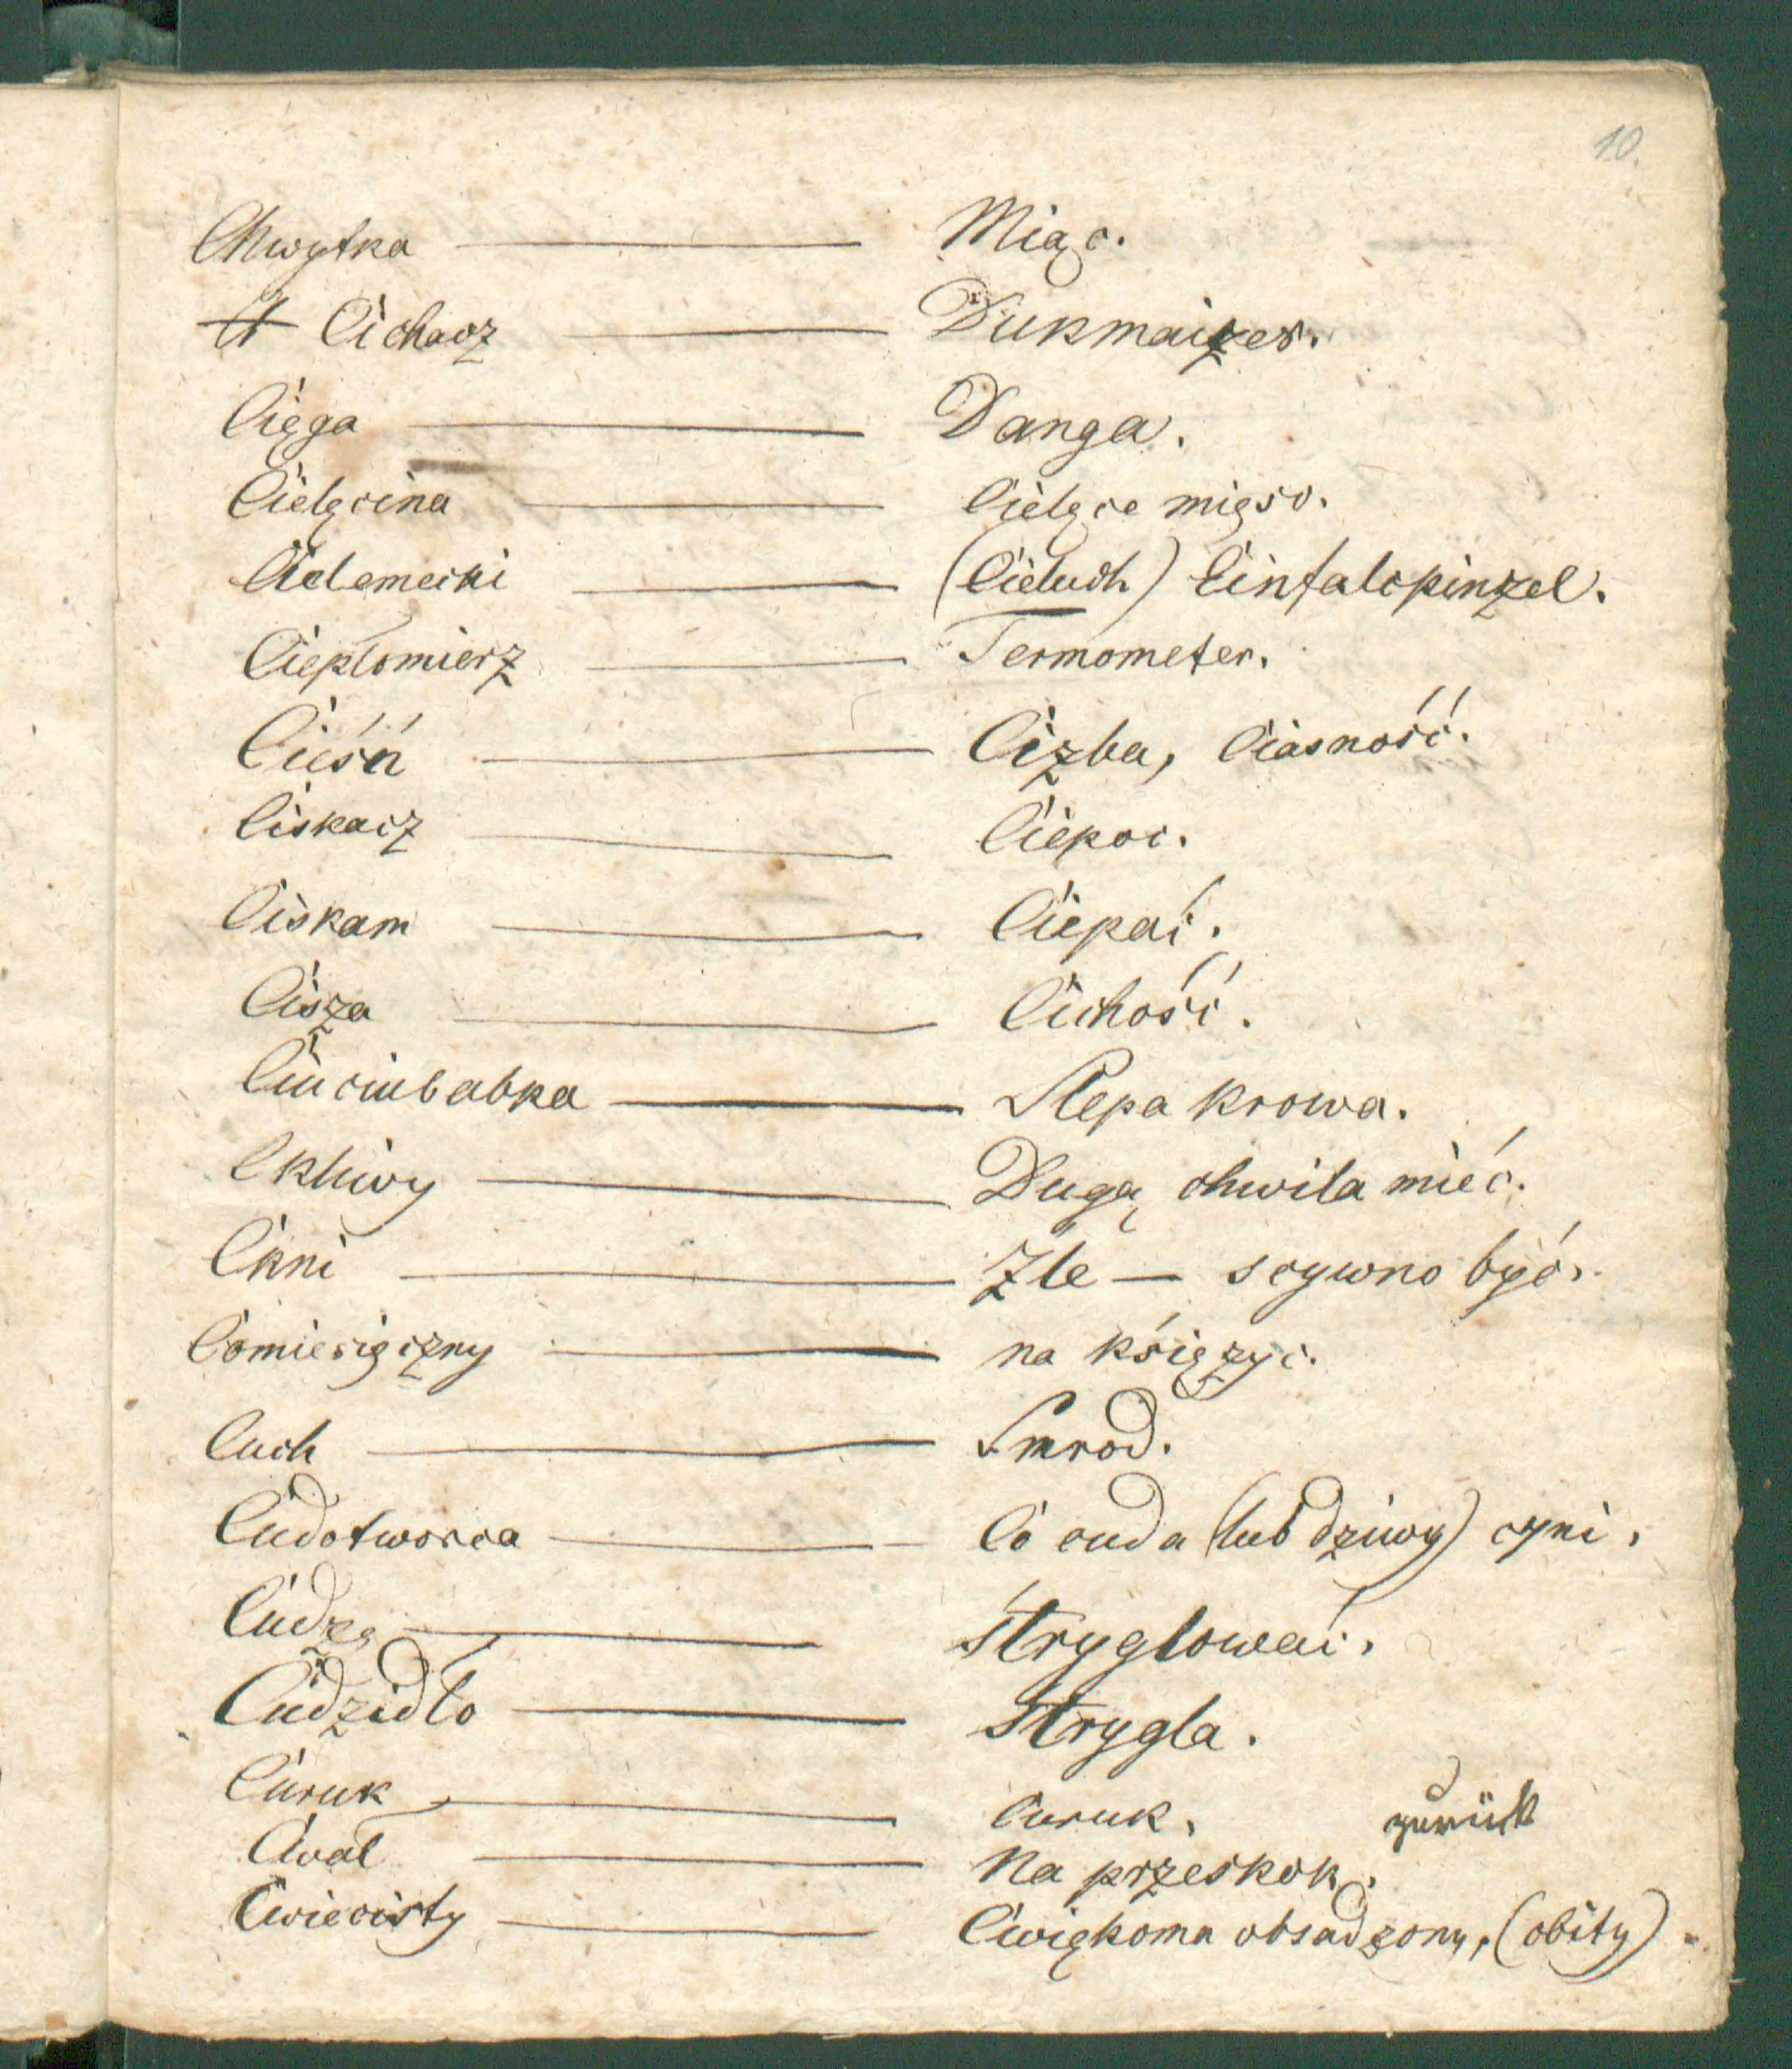 10.
Chwytka — Miąc.
Cichacz — Dukmaizer.
Cięga — Danga.
Cielęcina — Cielęce mięso.
Cielemecki — (Cieluch) Einfalcpinzel.
Ciepłomierz — Termometer.
Cieśń — Cizba, Ciasność.
Ciskacz — Ciepoc.
Ciskam — Ciepać.
Cisza — Cichość.
Ciuciubabka — Slepa krowa.
Ckliwy — Dugą chwila mieć.
Ckni — Zle — scywno być.
Comiesięczny — na księzyc.
Cuch — Smrod.
Cudotworca — Co cuda (lub dziwy) cyni.
Cudzę — Stryglować.
Cudzidło — Strygla.
Curuk — Curuk. zurück
Cwał — Na przeskok.
Cwiecisty — Cwiękoma obsadzony, (obity)